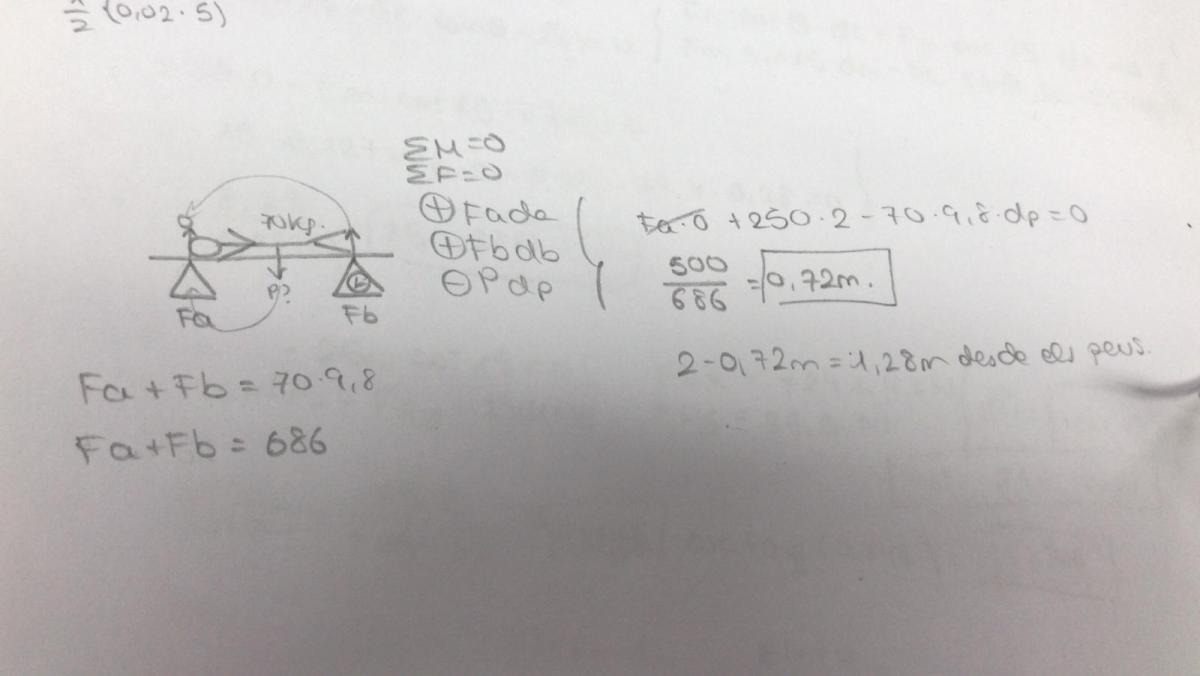 π/2 (0,02·5)
ΣM=0
ΣF=0
⊕Fada
⊕Fbdb
⊖Pdp
70Kp.
P?
Fa
Fb
Fa·0 +250·2-70·9,8·dp=0
500/686 = 0,72m.
2-0,72m=1,28m desde els peus.
Fa+Fb=70·9,8
Fa+Fb=686